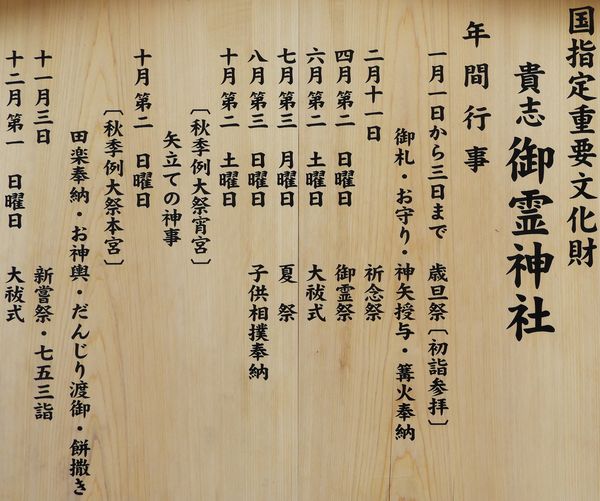 国指定重要文化財
貴志 御霊神社
年間行事
一月一日から三日まで 歳旦祭〔初詣参拝〕
御札・お守り・神矢授与・篝火奉納
二月十一日 祈念祭
四月第二 日曜日 御霊祭
六月第二 土曜日 大祓式
七月第三 月曜日 夏祭
八月第三 日曜日 子供相撲奉納
十月第二 土曜日
〔秋季例大祭宵宮〕
矢立ての神事
十月第二 日曜日
〔秋季例大祭本宮〕
田楽奉納・お神輿・だんじり渡御・餅撒き
十一月三日 新嘗祭・七五三詣
十二月第一 日曜日 大祓式